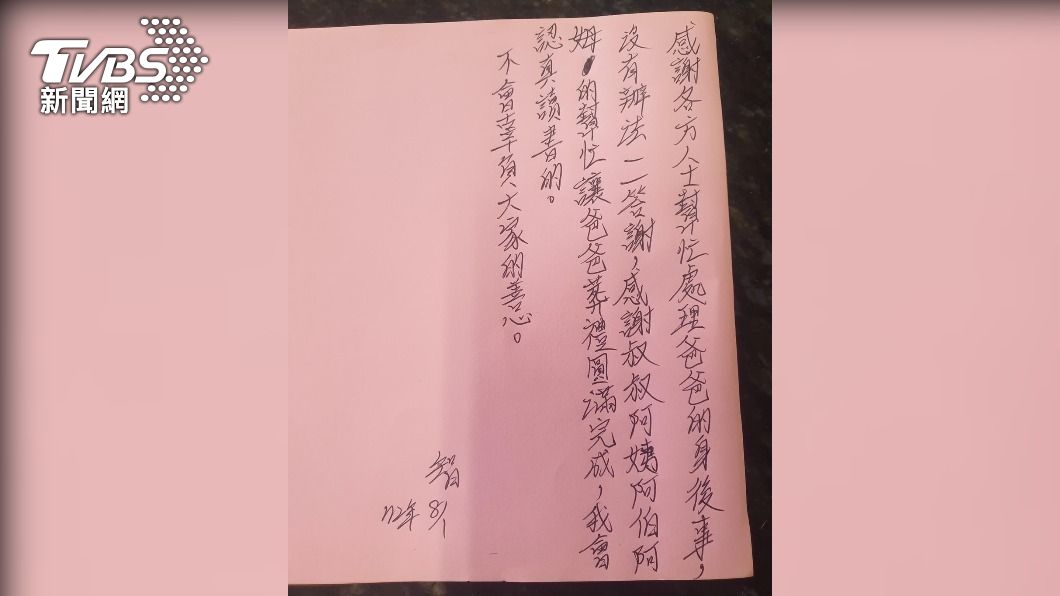 TVBS
新聞網
感謝各方人士幫忙處理爸爸的身後事，
沒有辦法一一答謝，感謝叔叔阿姨阿伯阿
姆，的幫忙讓爸爸葬禮圓滿完成，我會
認真讀書的。
不會辜負大家的善心。
智
112年 8/1